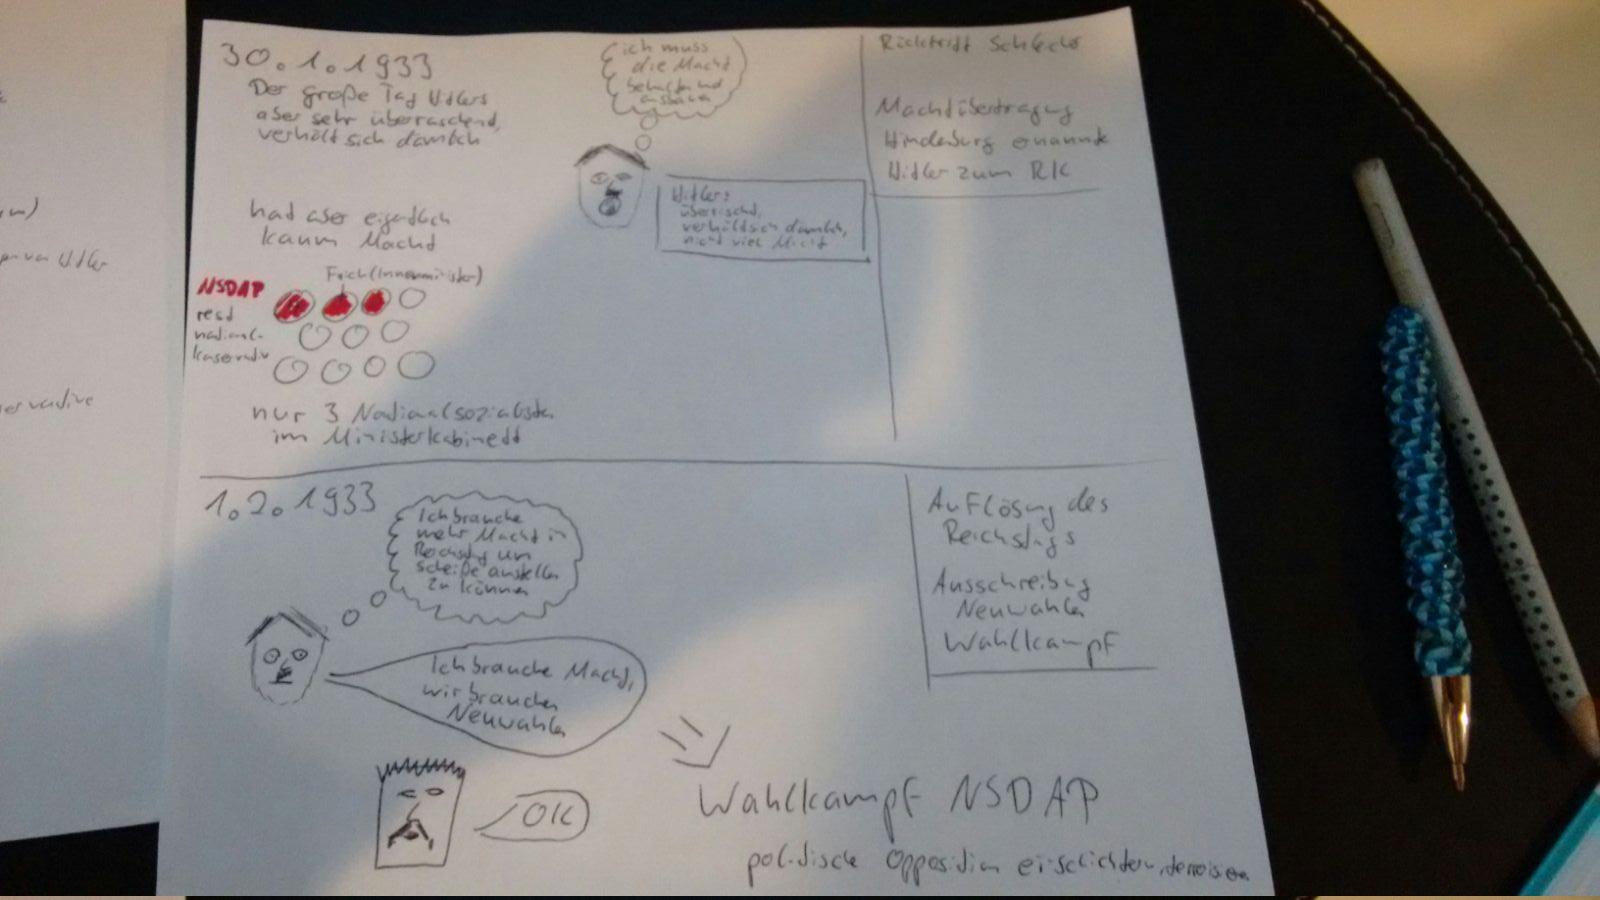 30.1.1933
Der große Tag Hitlers
aber sehr überraschend,
verhält sich dämlich
had aber eigentlich
kaum Macht
ich muss
die Macht
behalten und
ausbauen
Hitler:
überrascht,
verhält sich dämlich,
nicht viel Macht
Rücktritt
Machtübertragung
Hindenburg ernannte
Hitler zum RK
(Innenminister)
NSDAP
rest
national-
konservativ
nur 3 Nationalsozialisten
im Ministerkabinett
1.2.1933
Ich brauche
mehr Macht in
Reichstag um
scheiße anstellen
zu können
Ich brauche Macht,
wir brauchen
Neuwahlen
OK
Auflösung des
Reichstags
Ausschreibung
Neuwahlen
Wahlkampf
Wahlkampf NSDAP
politische Opposition einschüchtern, terrorisieren
Hitler